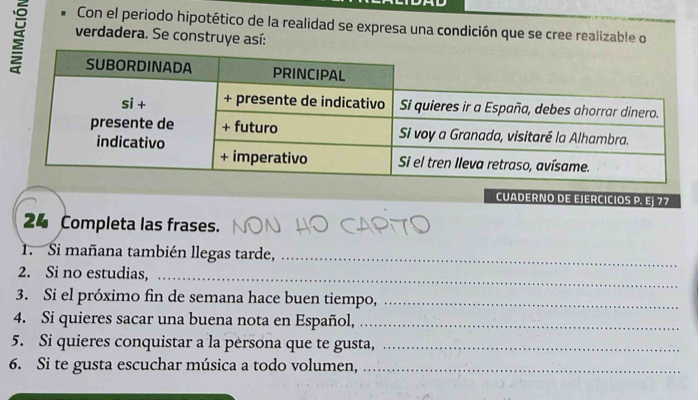 ANIMACIÓN
Con el periodo hipotético de la realidad se expresa una condición que se cree realizable o
verdadera. Se construye así:
SUBORDINADA PRINCIPAL
si +
presente de
indicativo
+ presente de indicativo Si quieres ir a España, debes ahorrar dinero.
+ futuro Si voy a Granada, visitaré la Alhambra.
+ imperativo Si el tren lleva retraso, avísame.
CUADERNO DE EJERCICIOS P. Ej 77
24 Completa las frases. NON HO CAPITO
1. Si mañana también llegas tarde,
2. Si no estudias,
3. Si el próximo fin de semana hace buen tiempo,
4. Si quieres sacar una buena nota en Español,
5. Si quieres conquistar a la persona que te gusta,
6. Si te gusta escuchar música a todo volumen,